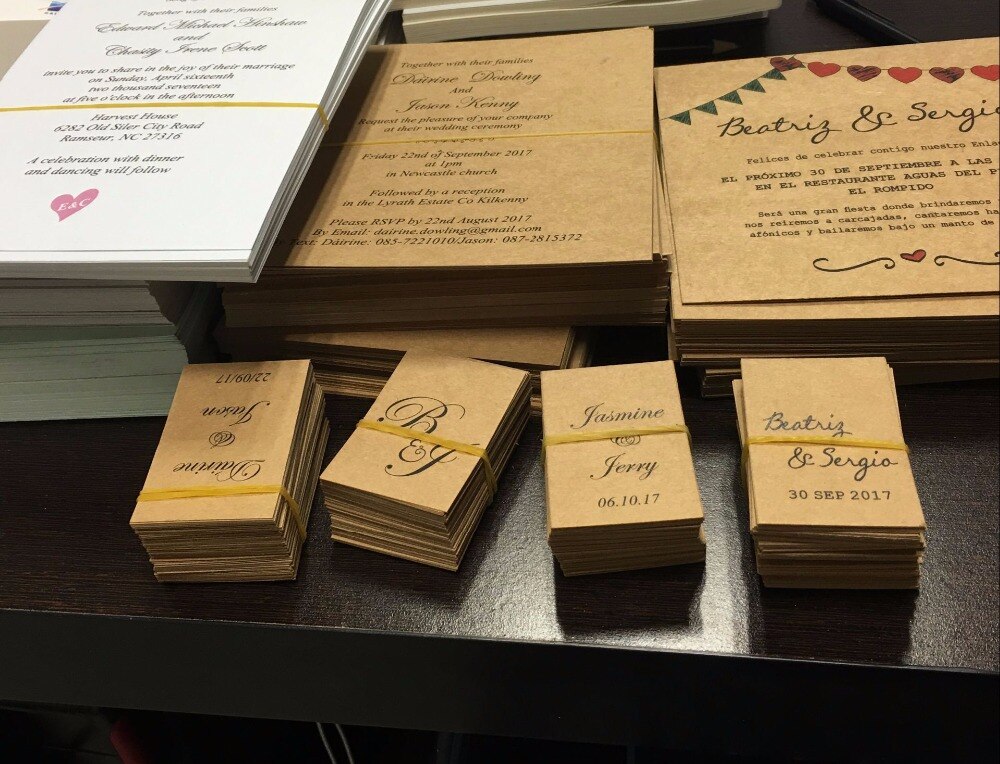 Together with their families
Edward Michael Hinshaw
and
Chasity Irene Scott
invite you to share in the joy of their marriage
on Sunday, April sixteenth
two thousand seventeen
at five o'clock in the afternoon
Harvest House
6282 Old Siler City Road
Ramseur, NC 27316
A celebration with dinner
and dancing will follow
E&C
Together with their families
Dáirine Dowling
And
Jason Kenny
Request the pleasure of your company
at their wedding ceremony
Friday 22nd of September 2017
at 1pm
in Newcastle church
Followed by a reception
in the Lyrath Estate Co Kilkenny
Please RSVP by 22nd August 2017
By Email: dairine.dowling@gmail.com
Text: Dáirine: 085-7221010/Jason: 087-2815372
Beatriz & Sergio
Felices de celebrar contigo nuestro
EL PRÓXIMO 30 DE SEPTIEMBRE A LAS
EN EL RESTAURANTE AGUAS DEL
EL ROMPIDO
Será una gran fiesta donde brindaremos
nos reiremos a carcajadas, cantaremos
afónicos y bailaremos bajo un manto de
Dáirine
&
Jason
22/09/17
B&J
Jasmine
&
Jerry
06.10.17
Beatriz
& Sergio
30 SEP 2017